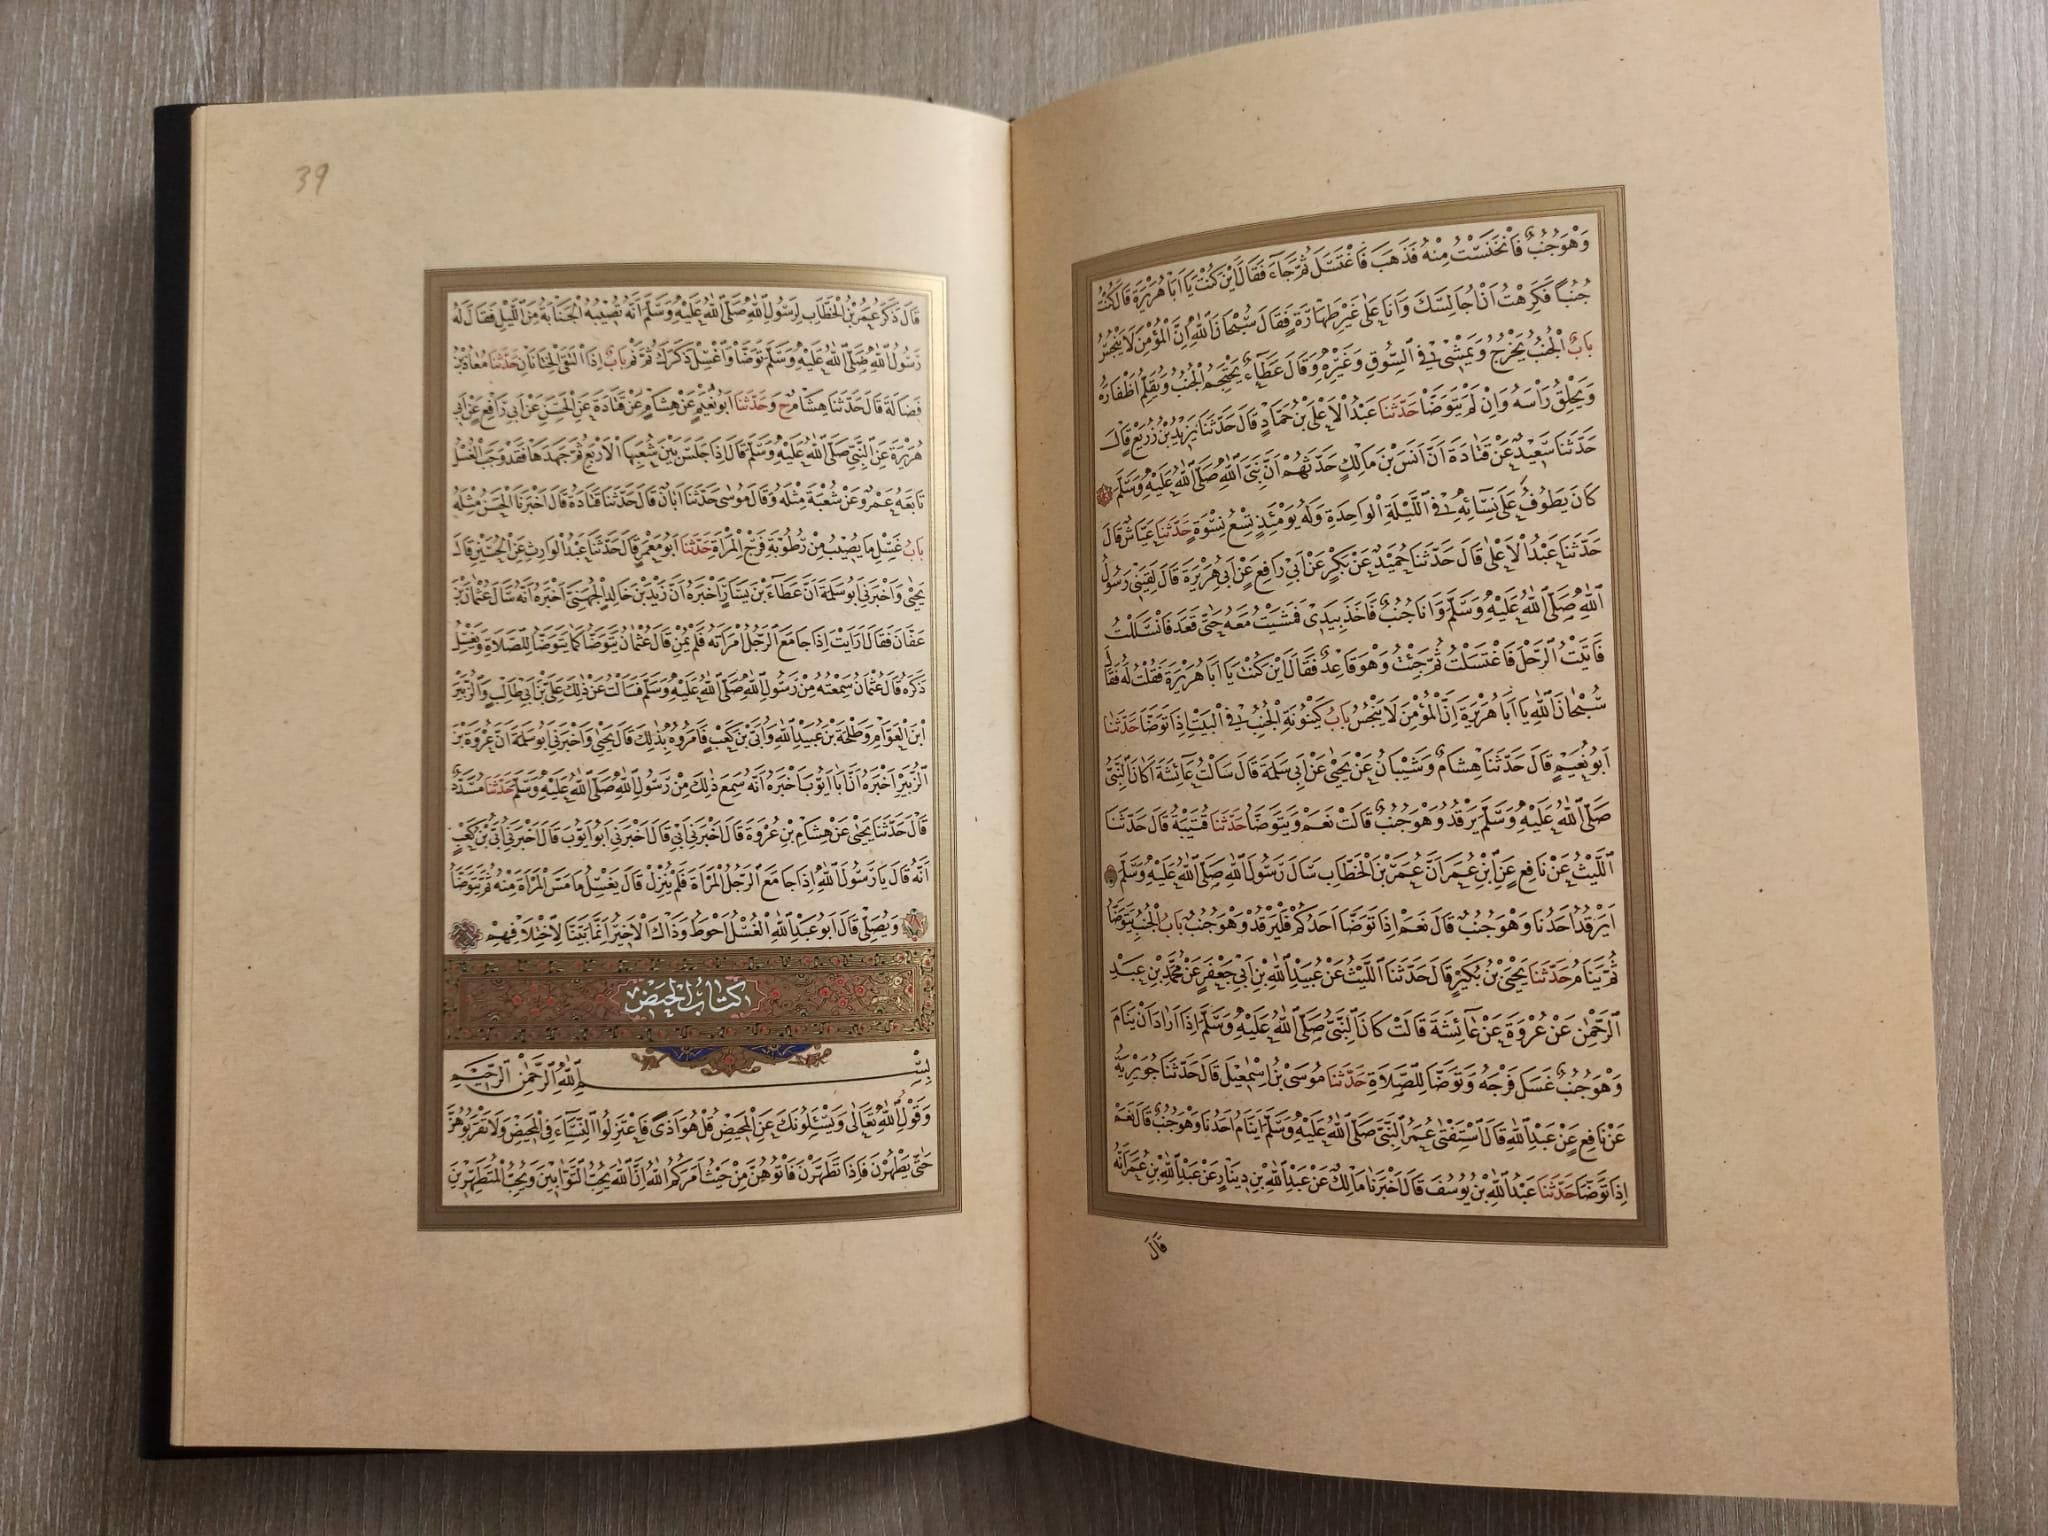 وَهُوَ جُنُبٌ فَانْخَنَسْتُ مِنْهُ فَذَهَبَ فَاغْتَسَلَ ثُمَّ جَاءَ فَقَالَ اَيْنَ كُنْتَ يَا اَبَا هُرَيْرَةَ قَالَ كُنْتُ
جُنُبًا فَكَرِهْتُ اَنْ اُجَالِسَكَ وَاَنَا عَلٰى غَيْرِ طَهَارَةٍ فَقَالَ سُبْحَانَ اللّٰهِ اِنَّ الْمُؤْمِنَ لَا يَنْجُسُ
بَابٌ الْجُنُبُ يَخْرُجُ وَيَمْشِى فِى السُّوقِ وَغَيْرِهِ وَقَالَ عَطَاءٌ يَحْتَجِمُ الْجُنُبُ وَيُقَلِّمُ اَظْفَارَهُ
وَيَحْلِقُ رَاْسَهُ وَاِنْ لَمْ يَتَوَضَّاْ حَدَّثَنَا عَبْدُ الْاَعْلَى بْنُ حَمَّادٍ قَالَ حَدَّثَنَا يَزِيدُ بْنُ زُرَيْعٍ قَالَ
حَدَّثَنَا سَعِيدٌ عَنْ قَتَادَةَ اَنَّ اَنَسَ بْنَ مَالِكٍ حَدَّثَهُمْ اَنَّ نَبِىَّ اللّٰهِ صَلَّى اللّٰهُ عَلَيْهِ وَسَلَّمَ
كَانَ يَطُوفُ عَلٰى نِسَائِهِ فِى اللَّيْلَةِ الْوَاحِدَةِ وَلَهُ يَوْمَئِذٍ تِسْعُ نِسْوَةٍ حَدَّثَنَا عَيَّاشٌ قَالَ
حَدَّثَنَا عَبْدُ الْاَعْلٰى قَالَ حَدَّثَنَا حُمَيْدٌ عَنْ بَكْرٍ عَنْ اَبِى رَافِعٍ عَنْ اَبِى هُرَيْرَةَ قَالَ لَقِيَنِى رَسُولُ
اللّٰهِ صَلَّى اللّٰهُ عَلَيْهِ وَسَلَّمَ وَاَنَا جُنُبٌ فَاَخَذَ بِيَدِى فَمَشَيْتُ مَعَهُ حَتّٰى قَعَدَ فَانْسَلَلْتُ
فَاَتَيْتُ الرَّحْلَ فَاغْتَسَلْتُ ثُمَّ جِئْتُ وَهُوَ قَاعِدٌ فَقَالَ اَيْنَ كُنْتَ يَا اَبَا هُرَيْرَةَ فَقُلْتُ لَهُ فَقَالَ
سُبْحَانَ اللّٰهِ يَا اَبَا هُرَيْرَةَ اِنَّ الْمُؤْمِنَ لَا يَنْجُسُ بَابُ كَيْنُونَةِ الْجُنُبِ فِى الْبَيْتِ اِذَا تَوَضَّاَ حَدَّثَنَا
اَبُو نُعَيْمٍ قَالَ حَدَّثَنَا هِشَامٌ وَشَيْبَانُ عَنْ يَحْيٰى عَنْ اَبِى سَلَمَةَ قَالَ سَاَلْتُ عَائِشَةَ اَكَانَ النَّبِىُّ
صَلَّى اللّٰهُ عَلَيْهِ وَسَلَّمَ يَرْقُدُ وَهُوَ جُنُبٌ قَالَتْ نَعَمْ وَيَتَوَضَّاُ حَدَّثَنَا قُتَيْبَةُ قَالَ حَدَّثَنَا
اللَّيْثُ عَنْ نَافِعٍ عَنِ ابْنِ عُمَرَ اَنَّ عُمَرَ بْنَ الْخَطَّابِ سَاَلَ رَسُولَ اللّٰهِ صَلَّى اللّٰهُ عَلَيْهِ وَسَلَّمَ
اَيَرْقُدُ اَحَدُنَا وَهُوَ جُنُبٌ قَالَ نَعَمْ اِذَا تَوَضَّاَ اَحَدُكُمْ فَلْيَرْقُدْ وَهُوَ جُنُبٌ بَابُ الْجُنُبِ يَتَوَضَّاُ
ثُمَّ يَنَامُ حَدَّثَنَا يَحْيَى بْنُ بُكَيْرٍ قَالَ حَدَّثَنَا اللَّيْثُ عَنْ عُبَيْدِ اللّٰهِ بْنِ اَبِى جَعْفَرٍ عَنْ مُحَمَّدِ بْنِ عَبْدِ
الرَّحْمٰنِ عَنْ عُرْوَةَ عَنْ عَائِشَةَ قَالَتْ كَانَ النَّبِىُّ صَلَّى اللّٰهُ عَلَيْهِ وَسَلَّمَ اِذَا اَرَادَ اَنْ يَنَامَ
وَهُوَ جُنُبٌ غَسَلَ فَرْجَهُ وَتَوَضَّاَ لِلصَّلَاةِ حَدَّثَنَا مُوسَى بْنُ اِسْمٰعِيلَ قَالَ حَدَّثَنَا جُوَيْرِيَةُ
عَنْ نَافِعٍ عَنْ عَبْدِ اللّٰهِ قَالَ اسْتَفْتٰى عُمَرُ النَّبِىَّ صَلَّى اللّٰهُ عَلَيْهِ وَسَلَّمَ اَيَنَامُ اَحَدُنَا وَهُوَ جُنُبٌ قَالَ نَعَمْ
اِذَا تَوَضَّاَ حَدَّثَنَا عَبْدُ اللّٰهِ بْنُ يُوسُفَ قَالَ اَخْبَرَنَا مَالِكٌ عَنْ عَبْدِ اللّٰهِ بْنِ دِينَارٍ عَنْ عَبْدِ اللّٰهِ بْنِ عُمَرَ اَنَّهُ
قَالَ
39
قَالَ ذَكَرَ عُمَرُ بْنُ الْخَطَّابِ لِرَسُولِ اللّٰهِ صَلَّى اللّٰهُ عَلَيْهِ وَسَلَّمَ اَنَّهُ تُصِيبُهُ الْجَنَابَةُ مِنَ اللَّيْلِ فَقَالَ لَهُ
رَسُولُ اللّٰهِ صَلَّى اللّٰهُ عَلَيْهِ وَسَلَّمَ تَوَضَّاْ وَاغْسِلْ ذَكَرَكَ ثُمَّ نَمْ بَابٌ اِذَا الْتَقَى الْخِتَانَانِ حَدَّثَنَا مُعَاذُ بْنُ
فَضَالَةَ قَالَ حَدَّثَنَا هِشَامٌ ح وَحَدَّثَنَا اَبُو نُعَيْمٍ عَنْ هِشَامٍ عَنْ قَتَادَةَ عَنِ الْحَسَنِ عَنْ اَبِى رَافِعٍ عَنْ اَبِى
هُرَيْرَةَ عَنِ النَّبِىِّ صَلَّى اللّٰهُ عَلَيْهِ وَسَلَّمَ قَالَ اِذَا جَلَسَ بَيْنَ شُعَبِهَا الْاَرْبَعِ ثُمَّ جَهَدَهَا فَقَدْ وَجَبَ الْغُسْلُ
تَابَعَهُ عَمْرٌو عَنْ شُعْبَةَ مِثْلَهُ وَقَالَ مُوسٰى حَدَّثَنَا اَبَانُ قَالَ حَدَّثَنَا قَتَادَةُ قَالَ اَخْبَرَنَا الْحَسَنُ مِثْلَهُ
بَابُ غَسْلِ مَا يُصِيبُ مِنْ رُطُوبَةِ فَرْجِ الْمَرْاَةِ حَدَّثَنَا اَبُو مَعْمَرٍ قَالَ حَدَّثَنَا عَبْدُ الْوَارِثِ عَنِ الْحُسَيْنِ قَالَ
يَحْيٰى وَاَخْبَرَنِى اَبُو سَلَمَةَ اَنَّ عَطَاءَ بْنَ يَسَارٍ اَخْبَرَهُ اَنَّ زَيْدَ بْنَ خَالِدٍ الْجُهَنِىَّ اَخْبَرَهُ اَنَّهُ سَاَلَ عُثْمَانَ بْنَ
عَفَّانَ فَقَالَ اَرَاَيْتَ اِذَا جَامَعَ الرَّجُلُ امْرَاَتَهُ فَلَمْ يُمْنِ قَالَ عُثْمَانُ يَتَوَضَّاُ كَمَا يَتَوَضَّاُ لِلصَّلَاةِ وَيَغْسِلُ
ذَكَرَهُ قَالَ عُثْمَانُ سَمِعْتُهُ مِنْ رَسُولِ اللّٰهِ صَلَّى اللّٰهُ عَلَيْهِ وَسَلَّمَ فَسَاَلْتُ عَنْ ذٰلِكَ عَلِىَّ بْنَ اَبِى طَالِبٍ وَالزُّبَيْرَ
ابْنَ الْعَوَّامِ وَطَلْحَةَ بْنَ عُبَيْدِ اللّٰهِ وَاُبَىَّ بْنَ كَعْبٍ فَاَمَرُوهُ بِذٰلِكَ قَالَ يَحْيٰى وَاَخْبَرَنِى اَبُو سَلَمَةَ اَنَّ عُرْوَةَ بْنَ
الزُّبَيْرِ اَخْبَرَهُ اَنَّ اَبَا اَيُّوبَ اَخْبَرَهُ اَنَّهُ سَمِعَ ذٰلِكَ مِنْ رَسُولِ اللّٰهِ صَلَّى اللّٰهُ عَلَيْهِ وَسَلَّمَ حَدَّثَنَا مُسَدَّدٌ
قَالَ حَدَّثَنَا يَحْيٰى عَنْ هِشَامِ بْنِ عُرْوَةَ قَالَ اَخْبَرَنِى اَبِى قَالَ اَخْبَرَنِى اَبُو اَيُّوبَ قَالَ اَخْبَرَنِى اُبَىُّ بْنُ كَعْبٍ
اَنَّهُ قَالَ يَا رَسُولَ اللّٰهِ اِذَا جَامَعَ الرَّجُلُ الْمَرْاَةَ فَلَمْ يُنْزِلْ قَالَ يَغْسِلُ مَا مَسَّ الْمَرْاَةَ مِنْهُ ثُمَّ يَتَوَضَّاُ
وَيُصَلِّى قَالَ اَبُو عَبْدِ اللّٰهِ الْغُسْلُ اَحْوَطُ وَذَاكَ الْاَخِيرُ اِنَّمَا بَيَّنَّا لِاخْتِلَافِهِمْ
كتاب الحيض
بِسْمِ اللّٰهِ الرَّحْمٰنِ الرَّحِيمِ
وَقَوْلُ اللّٰهِ تَعَالٰى وَيَسْئَلُونَكَ عَنِ الْمَحِيضِ قُلْ هُوَ اَذًى فَاعْتَزِلُوا النِّسَاءَ فِى الْمَحِيضِ وَلَا تَقْرَبُوهُنَّ
حَتّٰى يَطْهُرْنَ فَاِذَا تَطَهَّرْنَ فَاْتُوهُنَّ مِنْ حَيْثُ اَمَرَكُمُ اللّٰهُ اِنَّ اللّٰهَ يُحِبُّ التَّوَّابِينَ وَيُحِبُّ الْمُتَطَهِّرِينَ